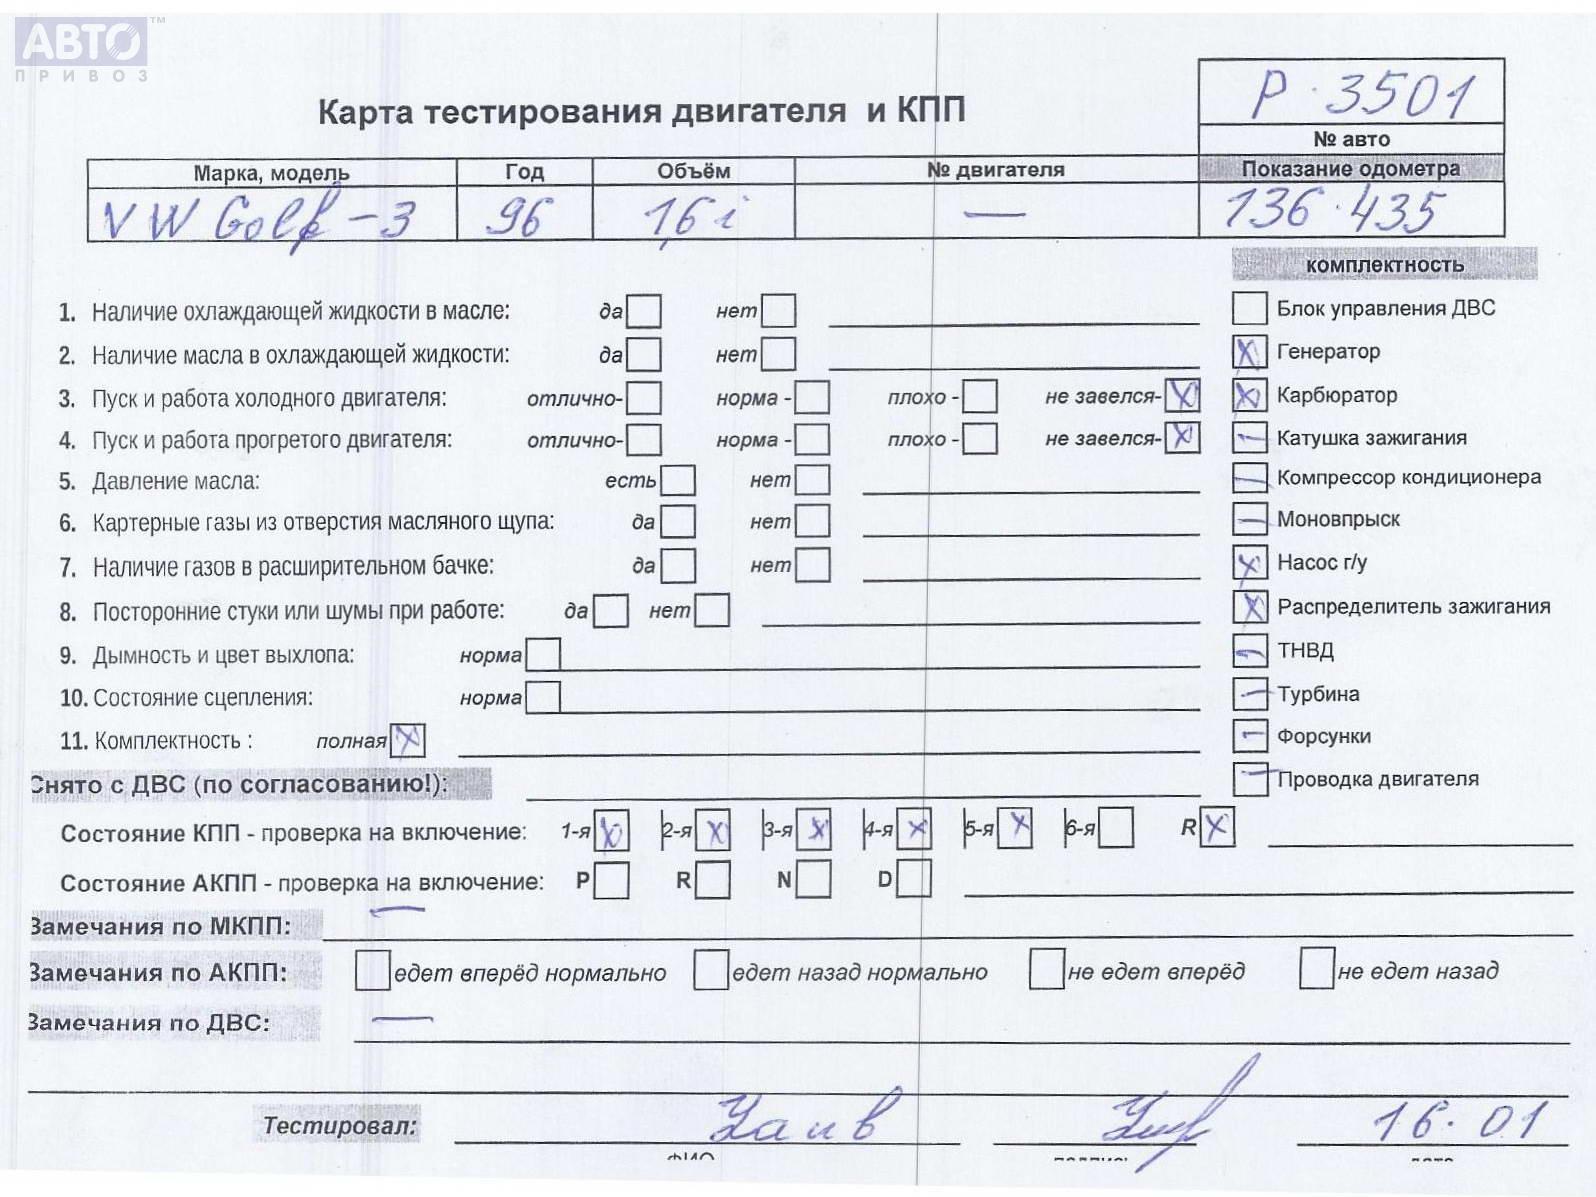 АВТО™
ПРИВОЗ
Р·3501
Карта тестирования двигателя и КПП
№ авто
Марка, модель Год Объём № двигателя Показание одометра
VW Golf-3 96 1,6 i — 136·435
комплектность
1. Наличие охлаждающей жидкости в масле: да нет
Блок управления ДВС
2. Наличие масла в охлаждающей жидкости: да нет
Генератор
3. Пуск и работа холодного двигателя: отлично- норма - плохо - не завелся-
Карбюратор
4. Пуск и работа прогретого двигателя: отлично- норма - плохо - не завелся-
Катушка зажигания
5. Давление масла: есть нет
Компрессор кондиционера
6. Картерные газы из отверстия масляного щупа: да нет
Моновпрыск
7. Наличие газов в расширительном бачке: да нет
Насос г/у
8. Посторонние стуки или шумы при работе: да нет
Распределитель зажигания
9. Дымность и цвет выхлопа: норма
ТНВД
10. Состояние сцепления: норма
Турбина
11. Комплектность : полная
Форсунки
Снято с ДВС (по согласованию!):
Проводка двигателя
Состояние КПП - проверка на включение: 1-я 2-я 3-я 4-я 5-я 6-я R
Состояние АКПП - проверка на включение: P R N D
Замечания по МКПП: —
Замечания по АКПП: едет вперёд нормально едет назад нормально не едет вперёд не едет назад
Замечания по ДВС: —
Тестировал: 16.01
ФИО подпись дата